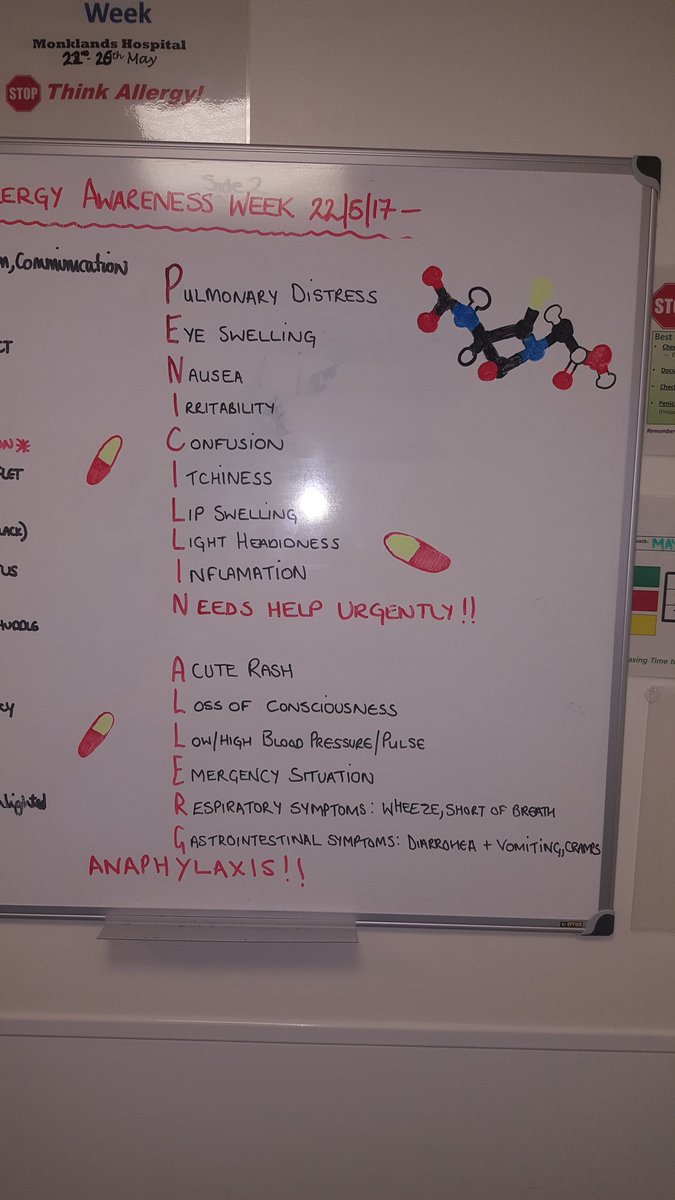 Week
Monklands Hospital
22nd- 26th May
STOP Think Allergy!
ERGY AWARENESS WEEK 22/5/17 -
Side 2
, COMMUNICATION
PULMONARY DISTRESS
EYE SWELLING
CT
NAUSEA
IRRITABILITY
ON*
CONFUSION
LET
ITCHINESS
LACK)
LIP SWELLING
LIGHT HEADIDNESS
TUS
INFLAMATION
HUDDLE
NEEDS HELP URGENTLY!!
ACUTE RASH
CY
LOSS OF CONSCIOUSNESS
LOW/HIGH BLOOD PRESSURE/PULSE
EMERGENCY SITUATION
RESPIRATORY SYMPTOMS: WHEEZE, SHORT OF BREATH
GASTROINTESTINAL SYMPTOMS: DIARROHEA + VOMITING, CRAMPS
ANAPHYLAXIS!!
STO
Best
Chec
Docu
Check
Penic
Remember
MAY
asing Time to